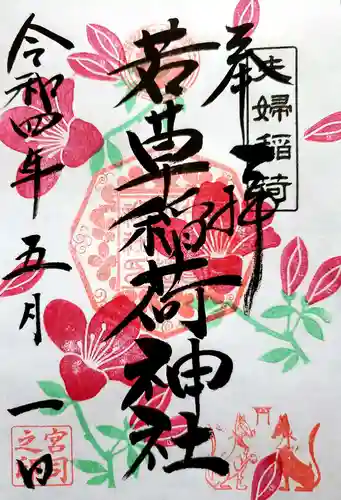 奉拝
夫婦稲荷
若草稲荷神社
令和四年五月一日